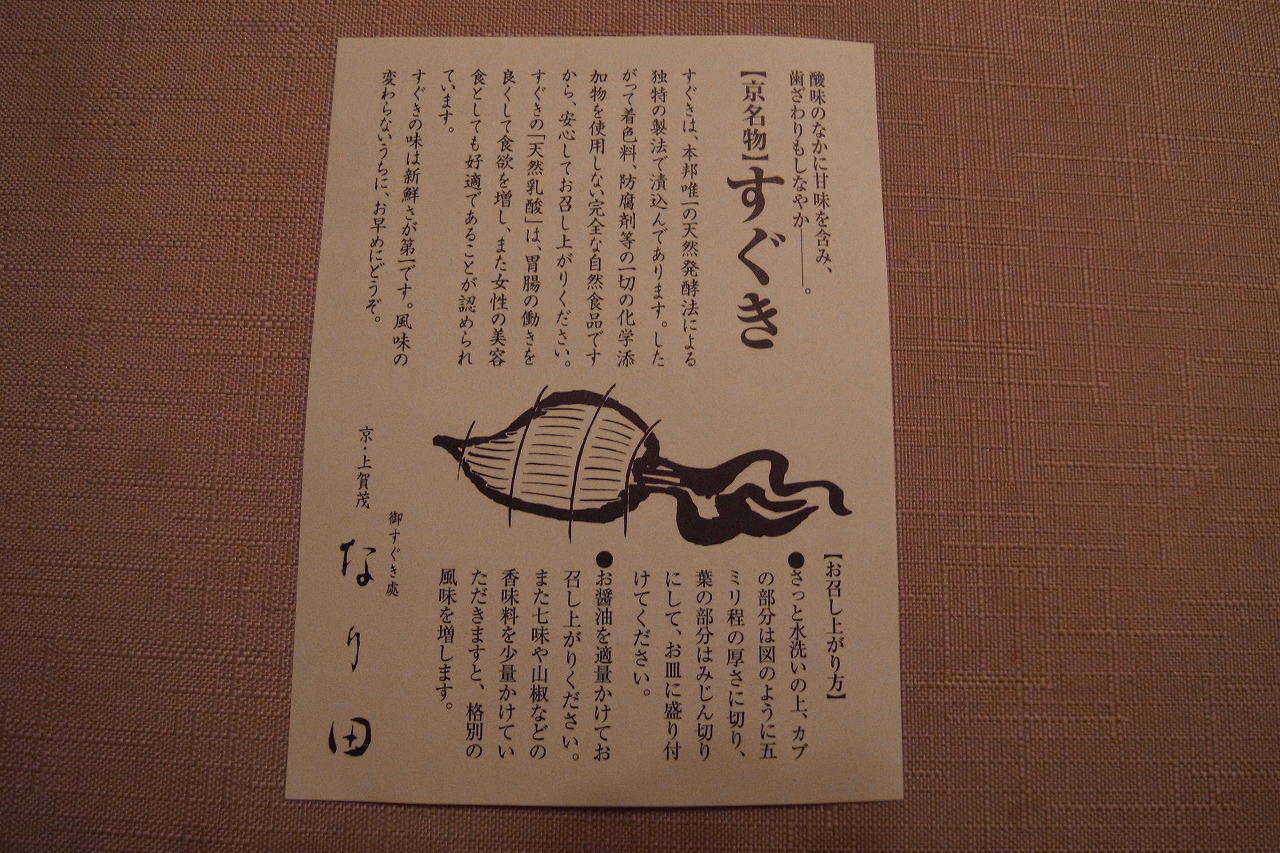 酸味のなかに甘味を含み、
歯ざわりもしなやか――。
【京名物】すぐき
すぐきは、本邦唯一の天然発酵法による
独特の製法で漬込んであります。した
がって着色料、防腐剤等の一切の化学添
加物を使用しない完全な自然食品です
から、安心してお召し上がりください。
すぐきの「天然乳酸」は、胃腸の働きを
良くして食欲を増し、また女性の美容
食としても好適であることが認められ
ています。
すぐきの味は新鮮さが第一です。風味の
変わらないうちに、お早めにどうぞ。
【お召し上がり方】
●さっと水洗いの上、カブ
の部分は図のように五
ミリ程の厚さに切り、
葉の部分はみじん切り
にして、お皿に盛り付
けてください。
●お醤油を適量かけてお
召し上がりください。
また七味や山椒などの
香味料を少量かけてい
ただきますと、格別の
風味を増します。
京・上賀茂
御すぐき處
なり田